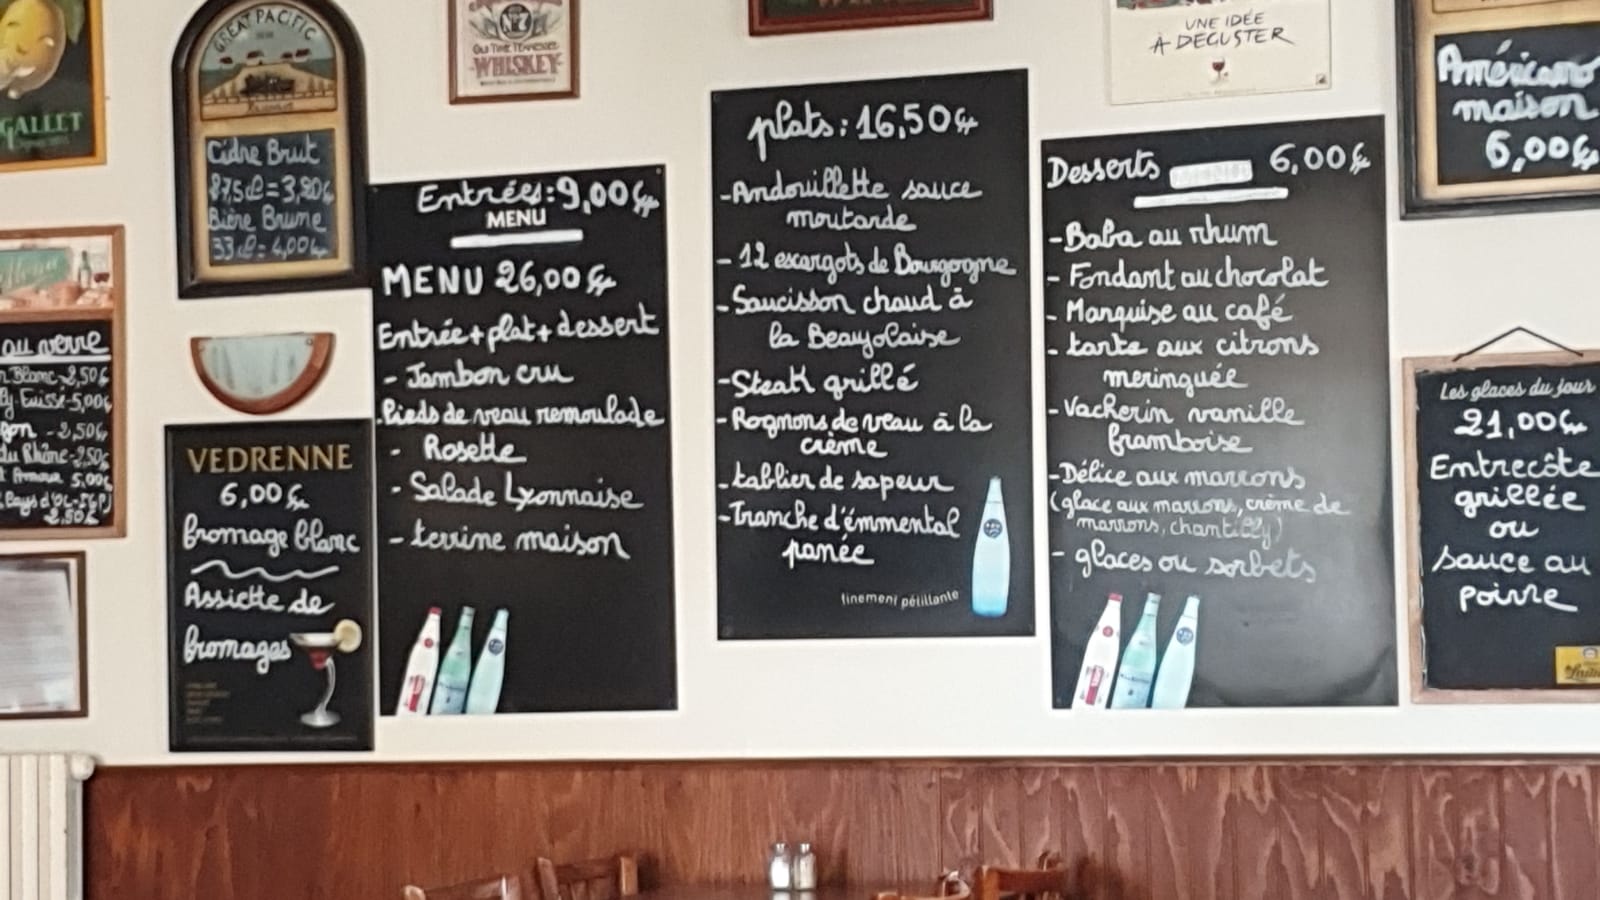 GALLET
GREAT PACIFIC
Cidre Brut
37,5cl = 3,80€
Bière Brune
33cl = 4,00€
OLD TIME TENNESSEE
WHISKEY
UNE IDÉE
À DEGUSTER
Américano
maison
6,00€
au verre
Blanc - 2,50€
Fuissé - 5,00€
- 2,50€
du Rhône - 2,50€
5,00€
2,50€
VEDRENNE
6,00€
fromage blanc
Assiette de
fromages
Entrées : 9,00€
MENU
MENU 26,00€
Entrée + plat + dessert
- Jambon cru
- Pieds de veau remoulade
- Rosette
- Salade Lyonnaise
- terrine maison
plats : 16,50€
- Andouillette sauce
moutarde
- 12 escargots de Bourgogne
- Saucisson chaud à
la Beaujolaise
- Steak grillé
- Rognons de veau à la
crème
- tablier de sapeur
- Tranche d'émmental
panée
finement pétillante
Desserts 6,00€
- Baba au rhum
- Fondant au chocolat
- Marquise au café
- tarte aux citrons
meringuée
- Vacherin vanille
framboise
- Délice aux marrons
(glace aux marrons, crème de
marrons, chantilly)
- glaces ou sorbets
Les glaces du jour
21,00€
Entrecôte
grillée
ou
sauce au
poivre